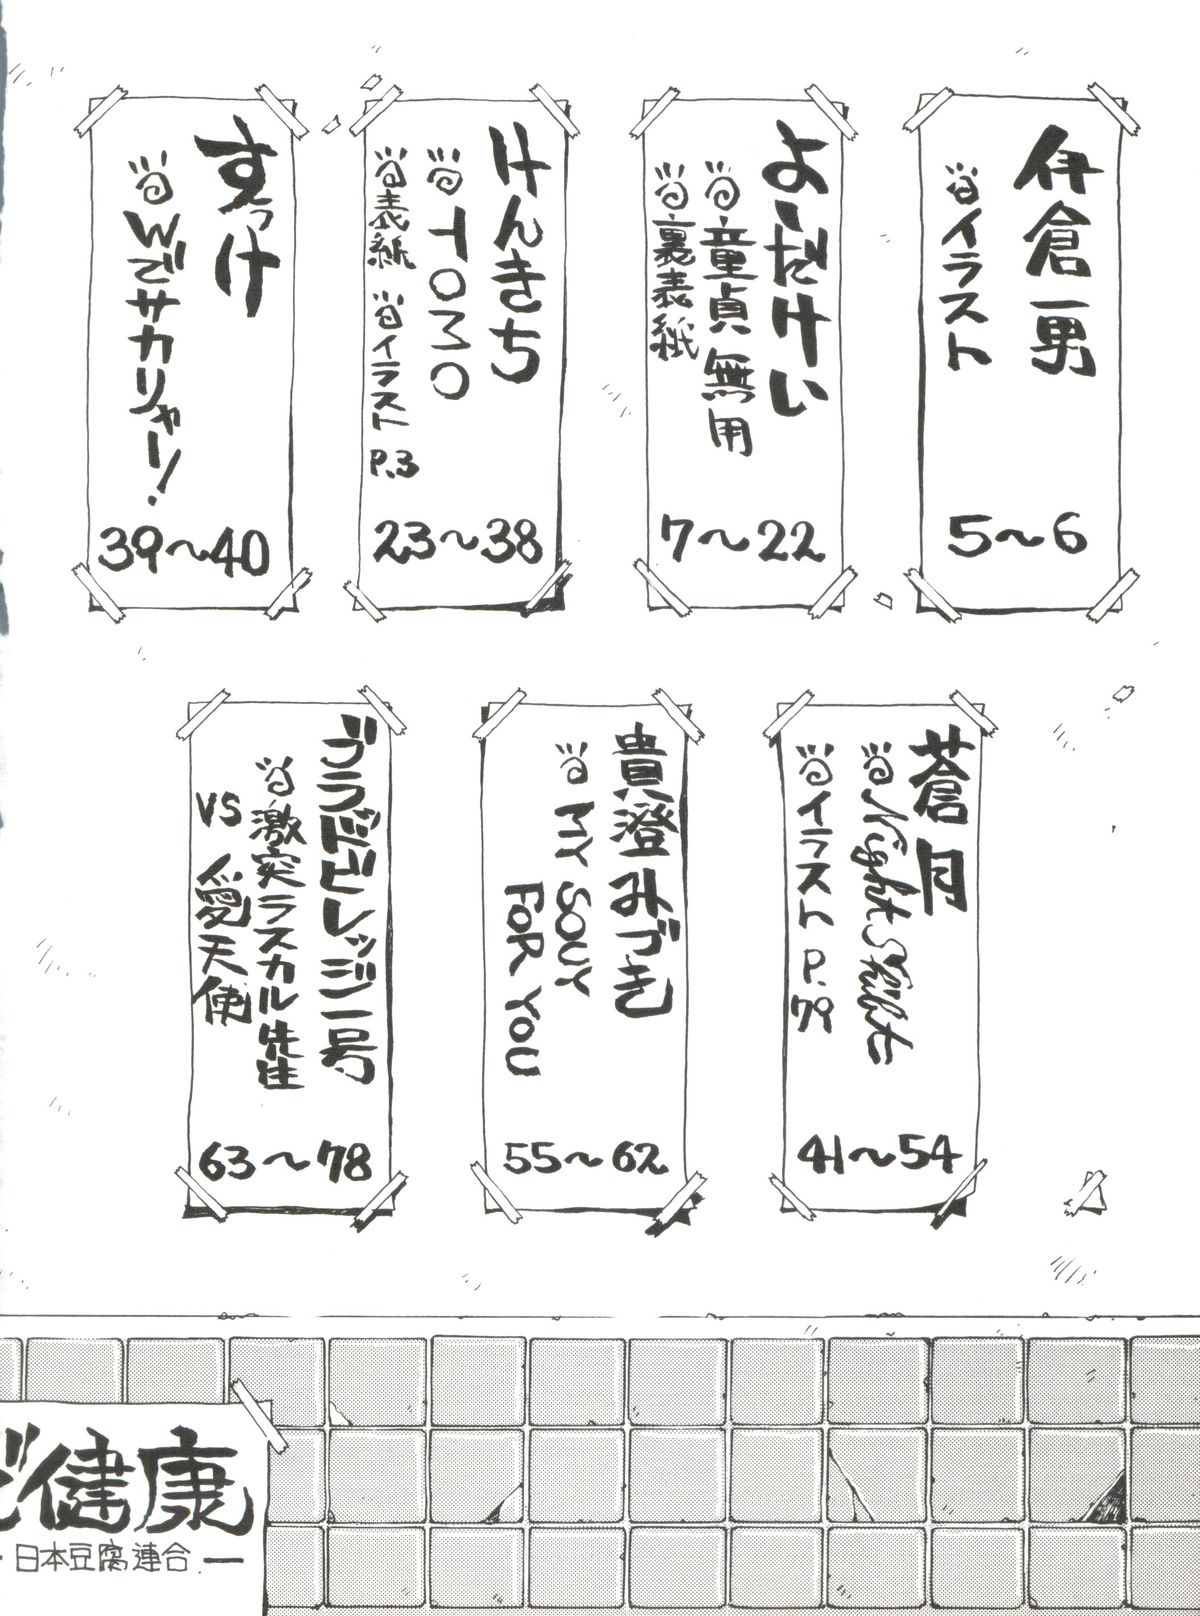 伊倉一男
イラスト
5〜6
よーだけい
童貞無用
裏表紙
7〜22
けんきち
TOMO
表紙 イラスト P.3
23〜38
すっけ
Wでサカリャー!
39〜40
蒼月
Night Shift
イラスト P.79
41〜54
貴澄みづき
MY SOUY
FOR YOU
55〜62
ブラドビレッジ一号
激突ラスカル先生
VS 愛天使
63〜78
で健康
日本豆腐連合